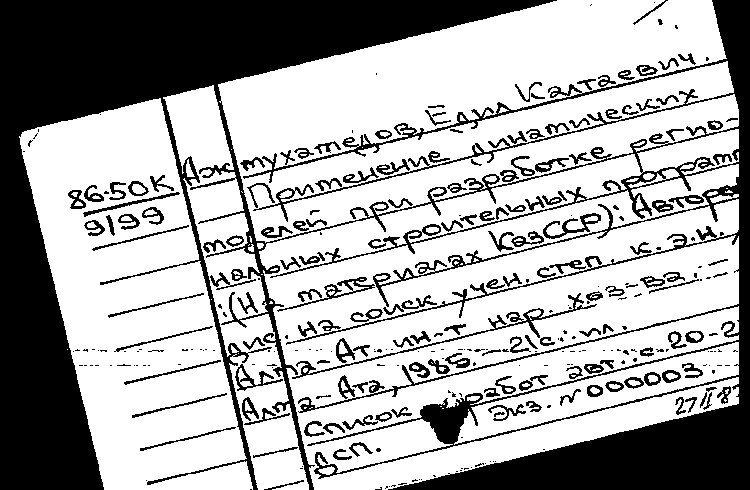 Джтухамедов, Едил Калтаевич.
86-50К Применение динамических
9199 моделей при разработке регио-
нальных строительных програм
:(На материалах КазССР): Автореф
дис. на соиск. учен. степ. к. э. н. /
Алма-Ат. ин-т нар. хоз-ва. -
Алма-Ата, 1985. - 21с.: ил.
Список работ авт.: с. 20-2
ДСП. Экз. N 000003.
27 II 87